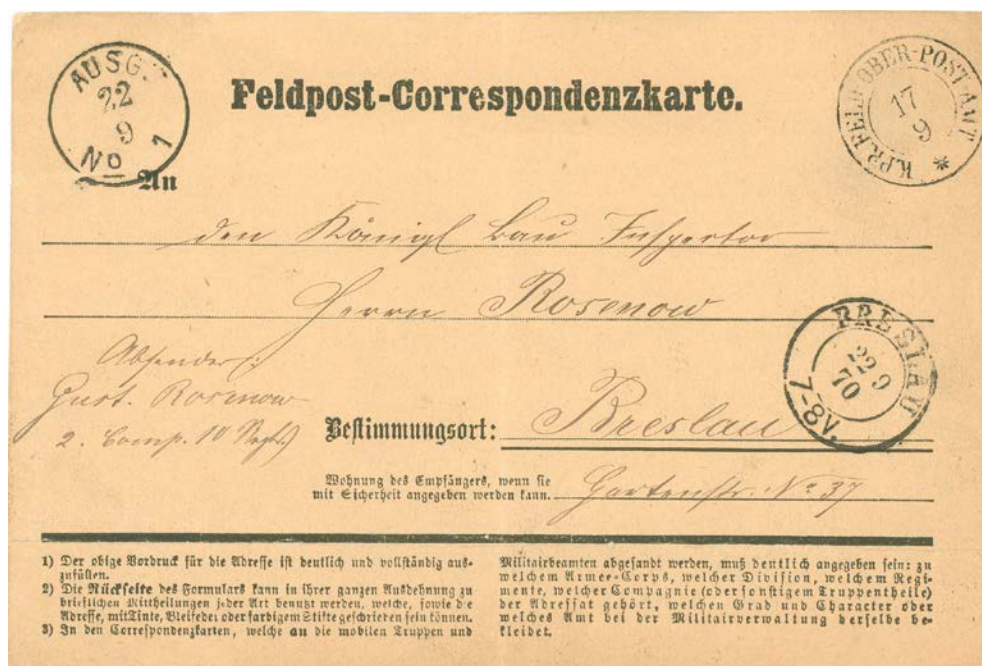 AUSG.
22
9
No 1
Feldpost-Correspondenzkarte.
K.PR.FELD-OBER-POST-AMT
17
9
An
den Königl Bau Inspector
Herrn Rosenow
Absender:
Gust. Rosenow
2. Comp. 10 Regt.
BRESLAU
22 9
70
7-8 V.
Bestimmungsort: Breslau
Wohnung des Empfängers, wenn sie
mit Sicherheit angegeben werden kann. Gartenstr. No 37
1) Der obige Vordruck für die Adresse ist deutlich und vollständig aus-
zufüllen.
2) Die Rückseite des Formulars kann in ihrer ganzen Ausdehnung zu
brieflichen Mittheilungen jeder Art benutzt werden, welche, sowie die
Adresse, mit Tinte, Bleifeder oder farbigem Stifte geschrieben sein können.
3) In den Correspondenzkarten, welche an die mobilen Truppen und
Militairbeamten abgesandt werden, muß deutlich angegeben sein: zu
welchem Armee-Corps, welcher Division, welchem Regi-
mente, welcher Compagnie (oder sonstigem Truppentheile)
der Adressat gehört, welchen Grad und Character oder
welches Amt bei der Militairverwaltung derselbe be-
kleidet.